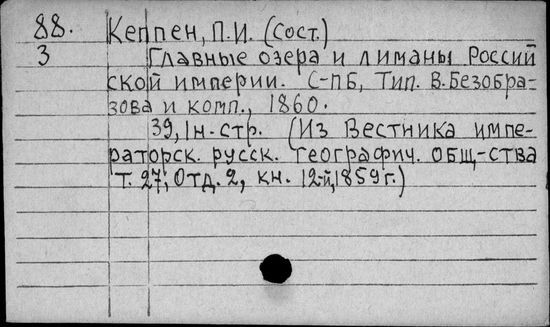 88. Кеппен, П.И. (Сост.)
3 Главные озера и лиманы Россий
ской империи. С-ПБ, Тип. В. Безобра-
зова и комп., 1860.
39, 1н. стр. (Из Вестника импе-
раторск. русск. географич. общ-ства
Т. 27, Отд. 2, кн. 12-й, 1859 г.)